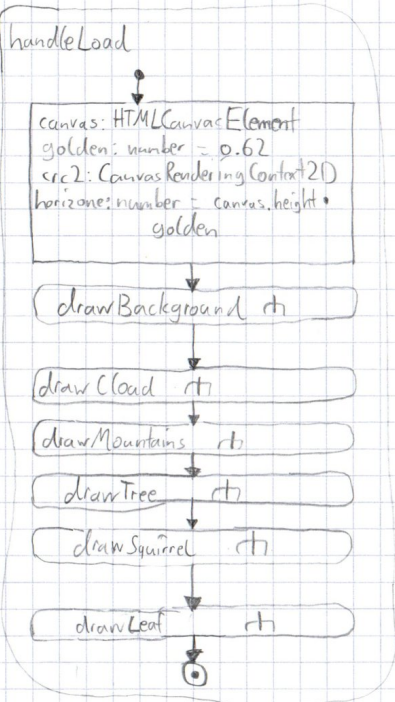 handleLoad
canvas: HTMLCanvasElement
golden: number = 0.62
crc2: CanvasRenderingContext2D
horizone: number = canvas.height •
golden
drawBackground
drawCload
drawMountains
drawTree
drawSquirrel
drawLeaf